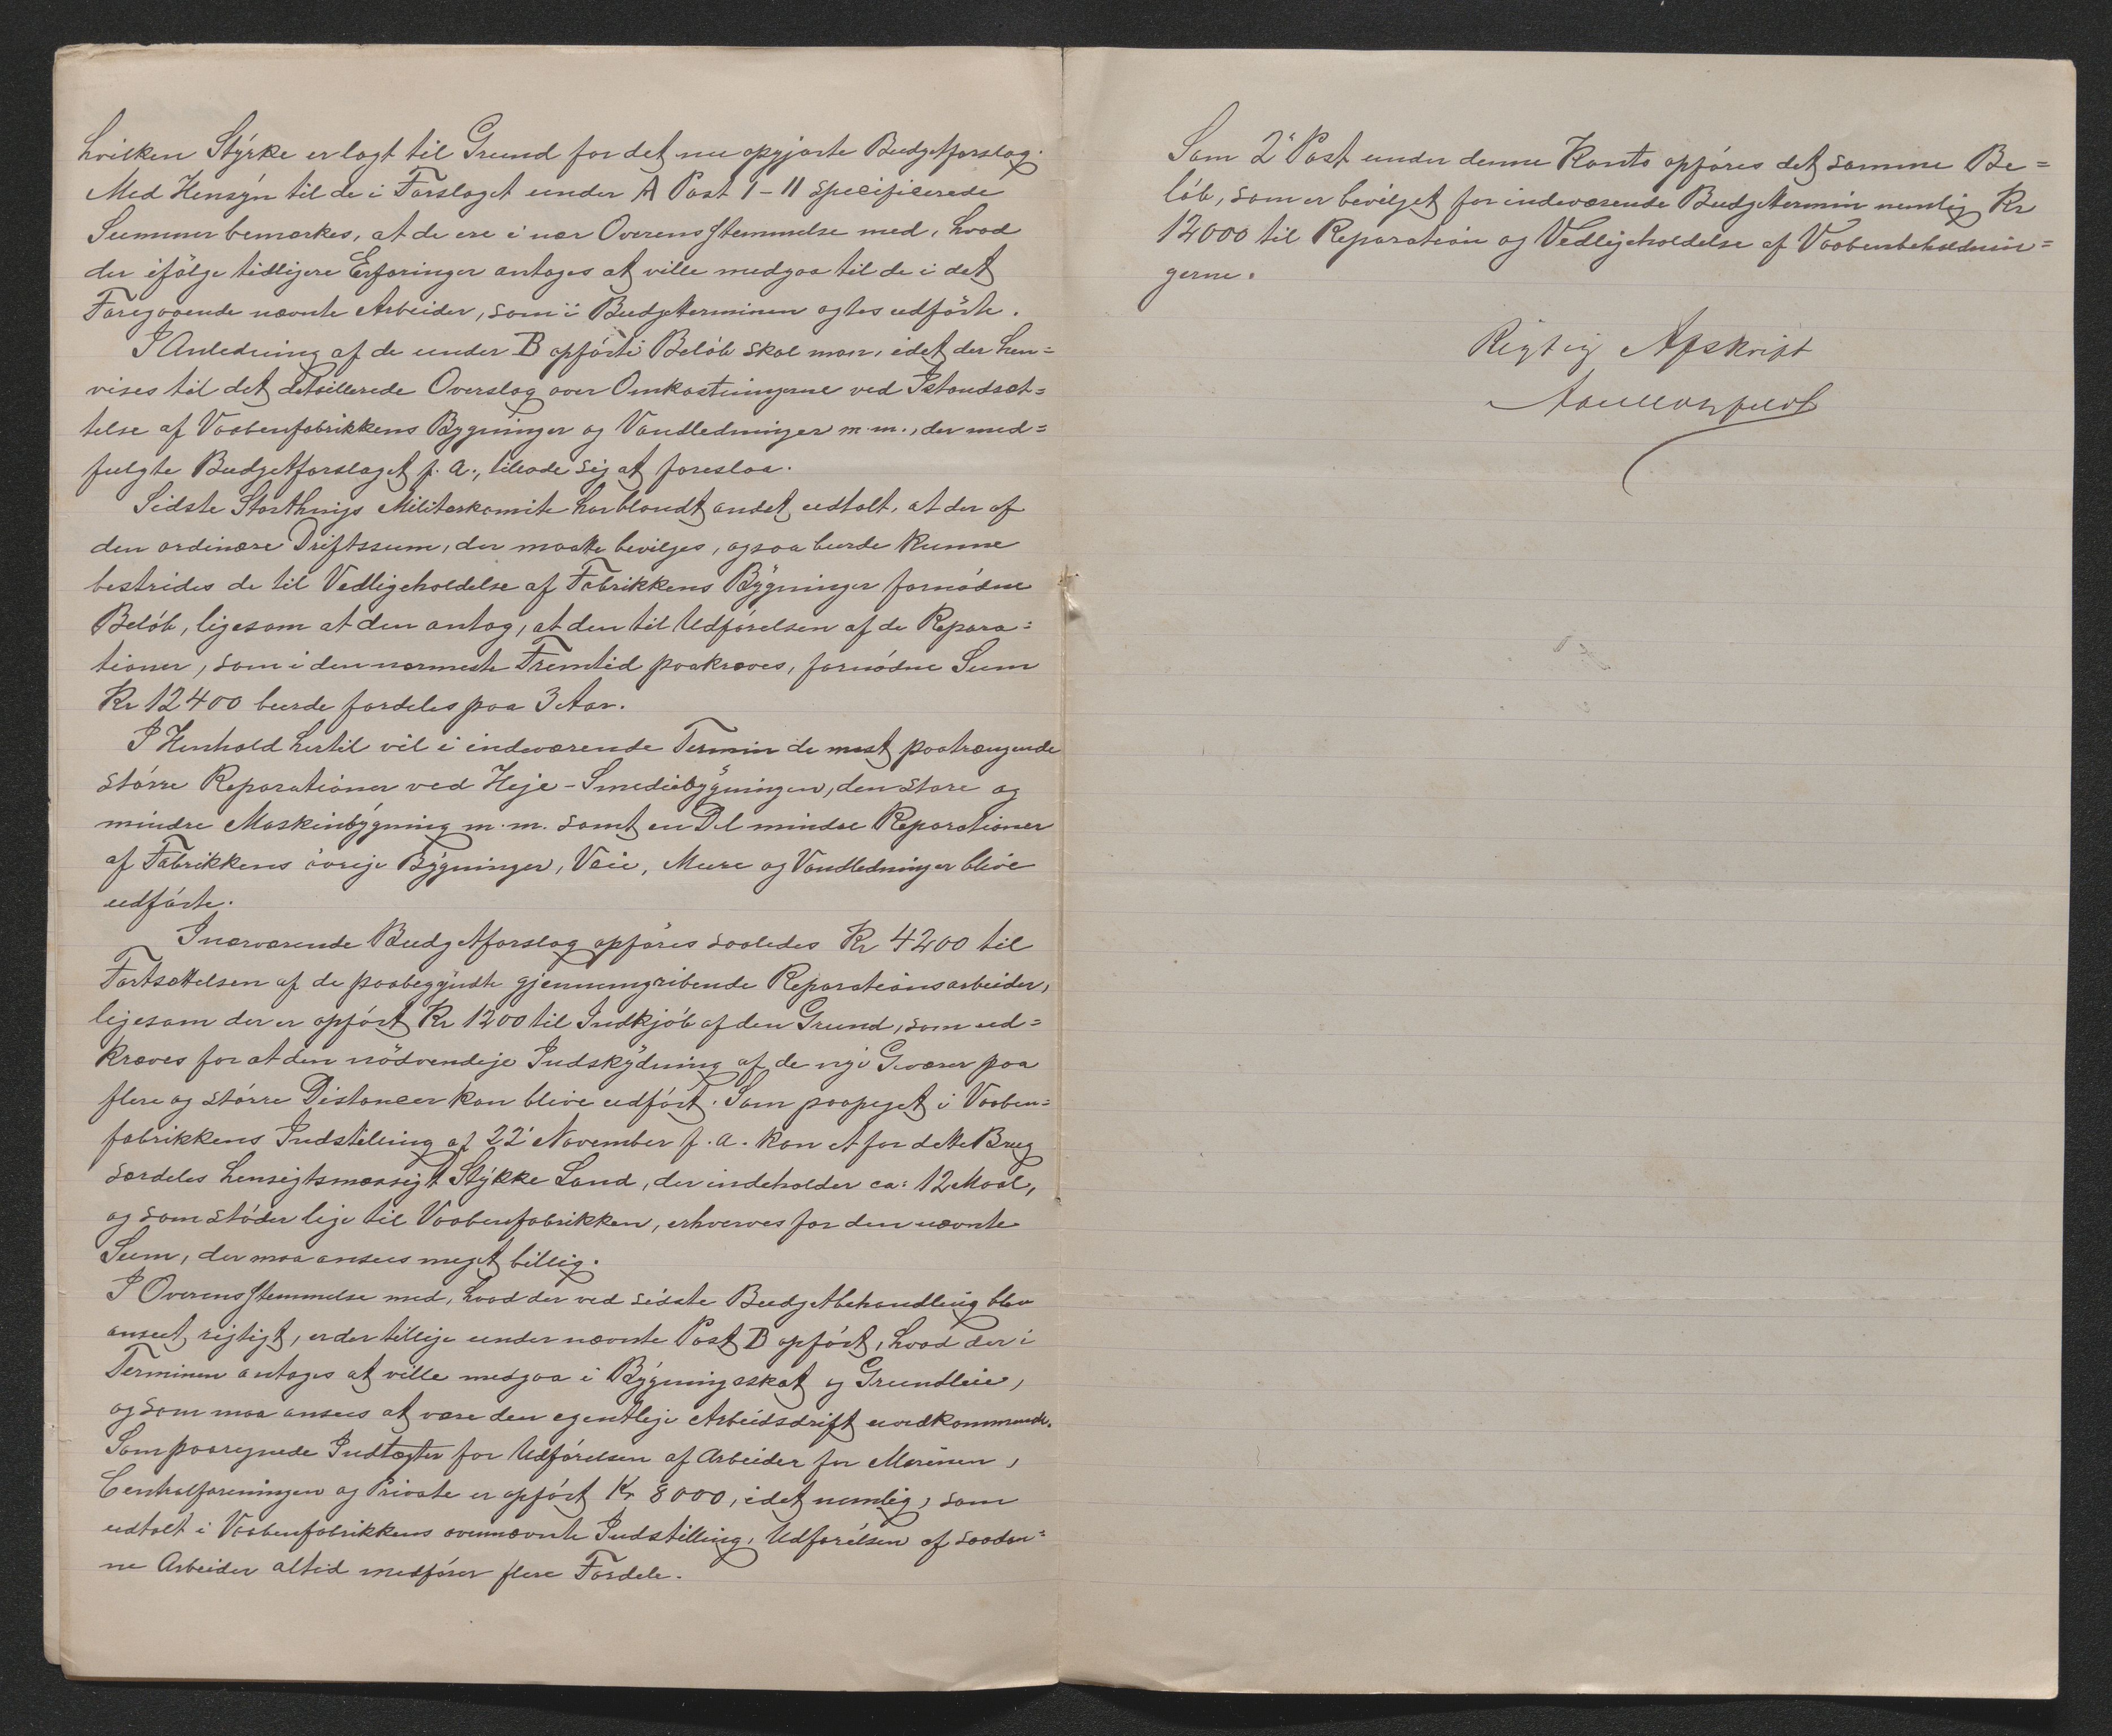 hvilken Styrke er lagt til Grund for det nu opgjorte Budgetforslag.
Med Hensyn til de i Forslaget under A Post 1-11 specificerede
Summer bemærkes, at de ere i nær Overensstemmelse med, hvad
der ifölge tidligere Erfaringer antages at ville medgaa til de i det
Foregaaende nævnte Arbeider, som i Budgetterminen agtes udförte.
I Anledning af de under B opförte Belöb skal man, idet der hen=
vises til det detaillerede Overslag over Omkostningerne ved Istandsæt=
telse af Vaabenfabrikkens Bygninger og Vandledninger m.m., der med=
fulgte Budgetforslaget f. A., tillade sig at foreslaa.
Sidste Storthings Militærkomite har blandt andet udtalt, at der af
den ordinære Driftssum, der maatte bevilges, ogsaa burde kunne
bestrides de til Vedligeholdelse af Fabrikkens Bygninger fornödne
Belöb, ligesom at den antog, at den til Udförelsen af de Repara=
tioner, som i den nærmeste Fremtid paakræves, fornödne Sum
Kr 12400 burde fordeles paa 3 Aar.
I Henhold hertil vil i indeværende Termin de mest paatrængende
större Reparationer ved Heje-Smediebygningen, den store og
mindre Maskinbygning m.m. samt en Del mindre Reparationer
af Fabrikkens övrige Bygninger, Veie, Mure og Vandledninger blive
udförte.
I nærværende Budgetforslag opföres saaledes Kr 4200 til
Fortsættelsen af de paabegyndte gjennemgribende Reparationsarbeider,
ligesom der er opfört Kr 1200 til Indkjöb af den Grund, som ud=
kræves for at den nödvendige Indskydning af de nye Geværer paa
flere og större Distancer kan blive udfört. Som paapeget i Vaaben=
fabrikkens Indstilling af 22' November f.A. kan et for dette Brug
særdeles hensigtsmæssigt Stykke Land, der indeholder ca: 12 Maal,
og som stöder lige til Vaabenfabrikken, erhverves for den nævnte
Sum, der maa ansees meget billig.
I Overensstemmelse med, hvad der ved sidste Budgetbehandling blev
anseet rigtigt, er der tillige under nævnte Post B opfört, hvad der i
Terminen antages at ville medgaa i Bygningsskat og Grundleie,
og som maa ansees at være den egentlige Arbeidsdrift uvedkommende.
Som paaregnede Indtægter for Udförelsen af Arbeider for Marinen,
Centralforeningen og Private er opfört Kr 8000, idet nemlig, som
udtalt i Vaabenfabrikkens ovennævnte Indstilling, Udförelsen af saadan=
ne Arbeider altid medförer flere Fordele.
Som 2' Post under denne Konto opföres det samme Be=
löb, som er bevilget for indeværende Budgettermin nemlig Kr
12000 til Reparation og Vedligeholdelse af Vaabenbeholdnin=
gerne.
Rigtig Afskrift